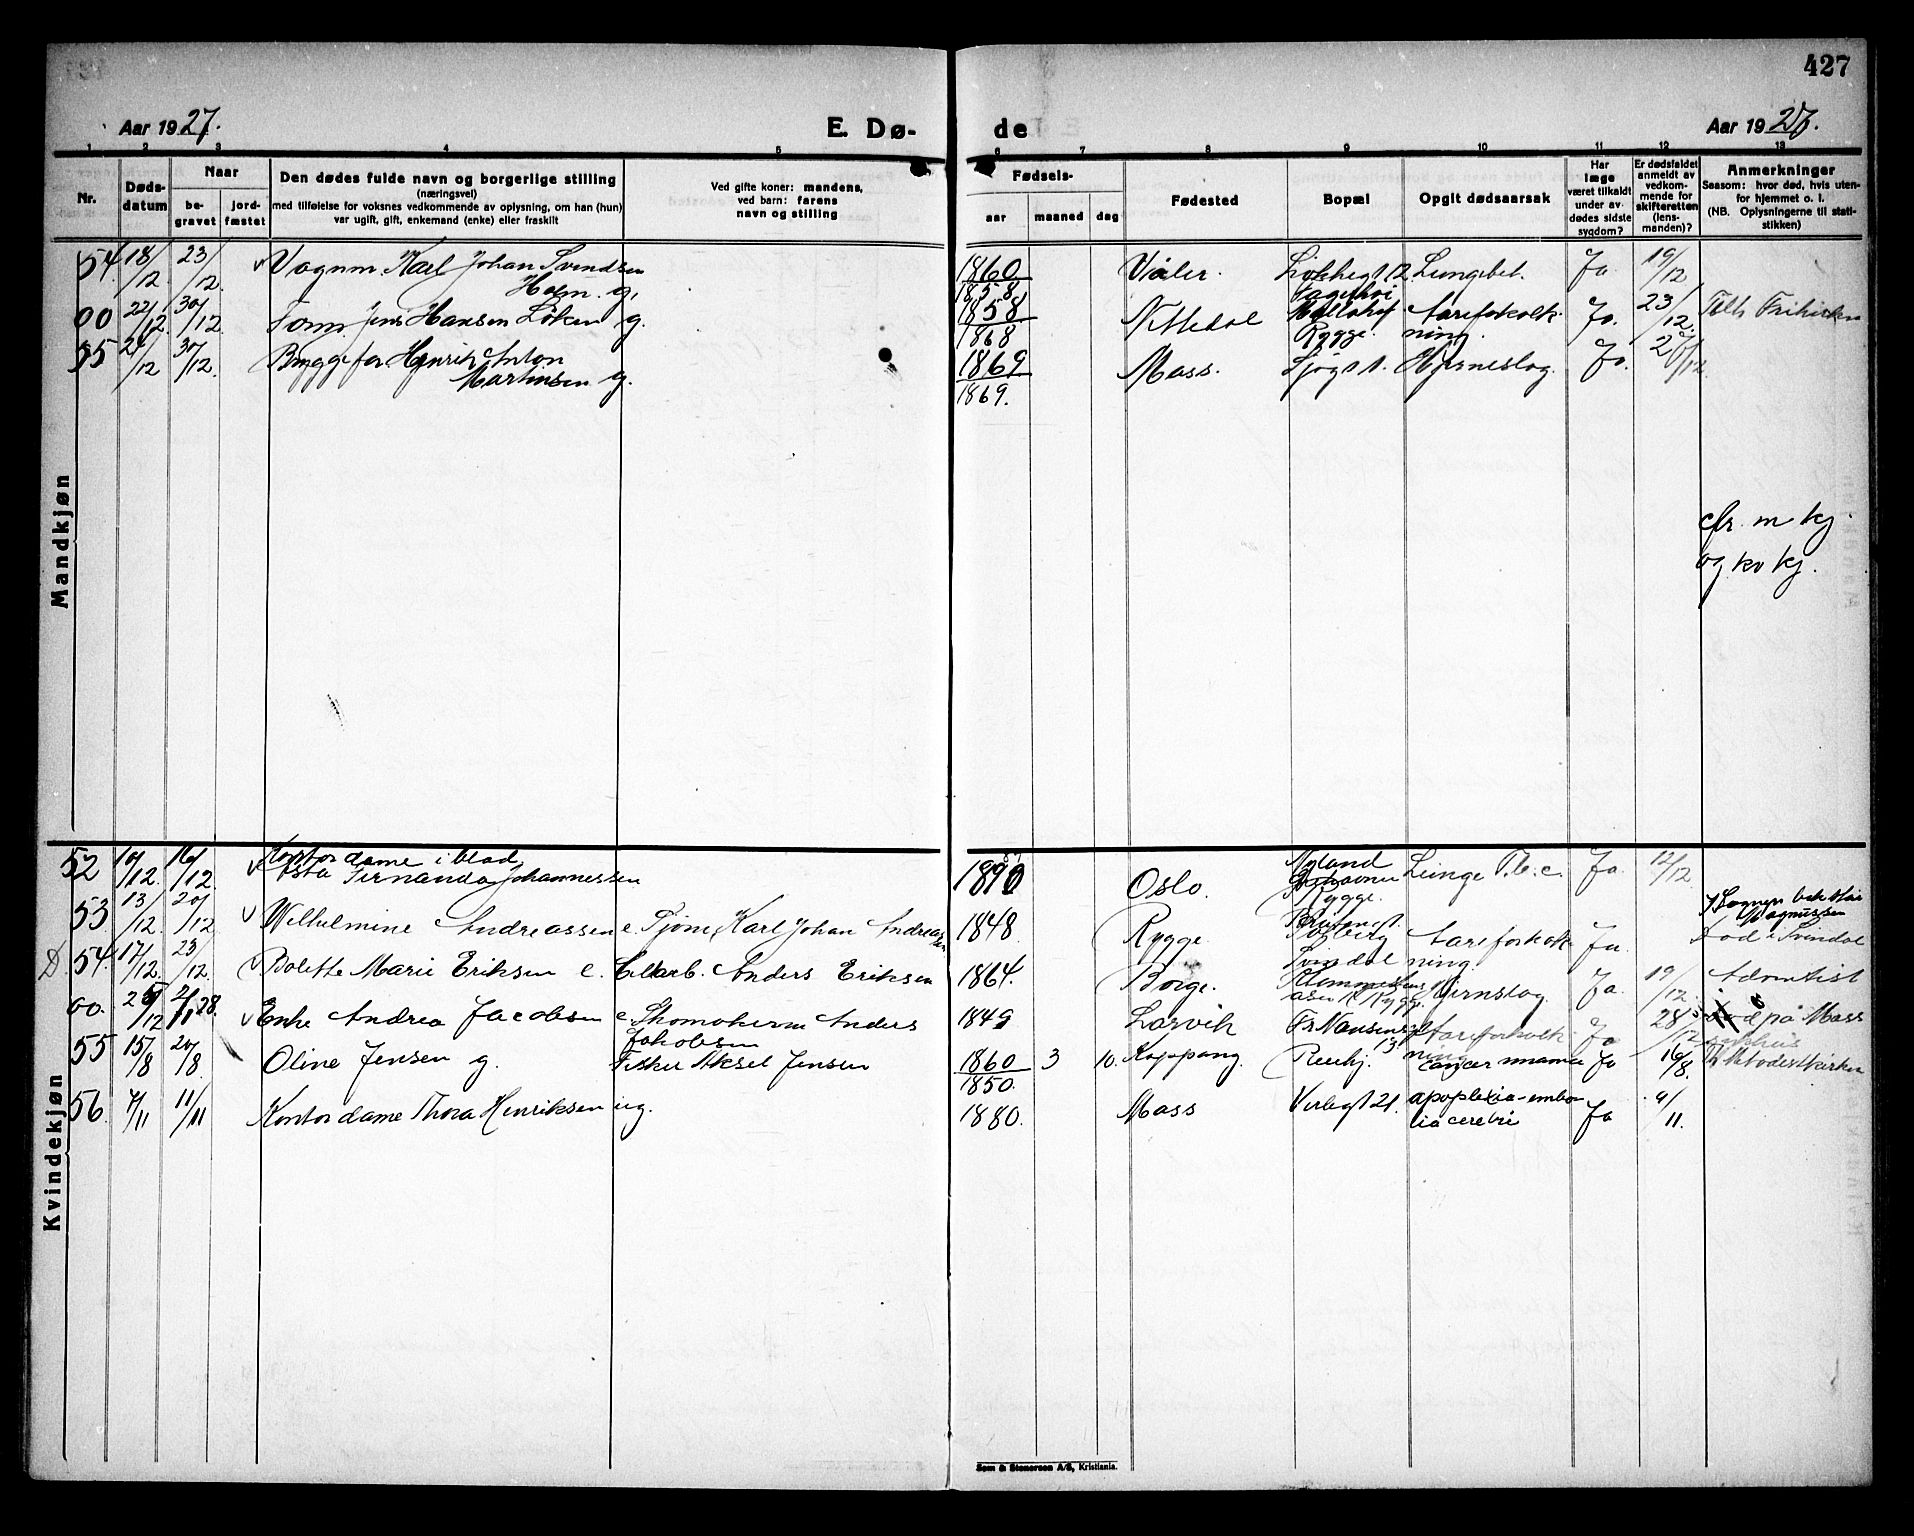 427
Aar 1927.
E. Dø-
de
Aar 1927.
1 2 3 4 5 6 7 8 9 10 11 12 13
Nr.
Døds-
datum
Naar
be-
gravet
jord-
fæstet
Den dødes fulde navn og borgerlige stilling
(næringsvei)
med tilføielse for voksnes vedkommende av oplysning, om han (hun)
var ugift, gift, enkemand (enke) eller fraskilt
Ved gifte koner: mandens,
ved barn: farens
navn og stilling
Fødsels-
aar
maaned
dag
Fødested
Bopæl
Opgit dødsaarsak
Har
læge
været tilkaldt
under av-
dødes sidste
sygdom?
Er dødsfaldet
anmeldt av
vedkom-
mende for
skifteretten
(lens-
manden)?
Anmerkninger
Saasom: hvor død, hvis uten-
for hjemmet o. l.
(NB. Oplysningerne til stati-
stikken)
Mandkjøn
54. 18/12 23/12. Vognm. Karl Johan Svendsen
Holm. g. 1860 1858 Våler. Lungebet. Ja 19/12
00 22/12. 30/12. Jens Hansen Löken g. 1858 1868 Nittedal Rygge. Aareforkalk-
ning. Ja. 23/12. Frikirken
55 30/12. Byggefor. Henrik Anton
Martinsen g. 1869 1869. Moss. Hjerneslag. Ja.
cfr. m kj.
og kv kj.
Kvindekjøn
52 10/12. 16/12. Kontordame i blad
Fernanda Johannessen 1890 Oslo. Rygge. Lunge T.b.c. Ja 12/12
53 13/12 20/12 Wilhelmine Andreassen e. Karl Johan Andreassen 1848 Rygge Aareforkalk-
ning. Ja. Død i Svindal
D 54. 17/12. 23/12. Bolette Marie Eriksen e. Anders Eriksen 1864. Borge. Hjernslag. Ja 19/12. Adventist
00. 2/1 28. Enke Andrea Jacobsen e. Skomakerm Anders
Jakobsen 1849 Larvik Fr Nansensgt
13 Aareforkalk-
ning Ja 28/12 Død på Moss
55 15/8 20/8 Oline Jensen g. Fisker Aksel Jensen 1860 1850. 3 10. Koppang. Reierbj. cancer mamma Ja 16/8. Metodistkirken
56. 11/11 Kontordame Thora Henriksen ug. 1880. Moss Verlegt 21. apoplexia-embo-
lia cerebri Ja 9/11.
Sem & Stenersen A/S, Kristiania.